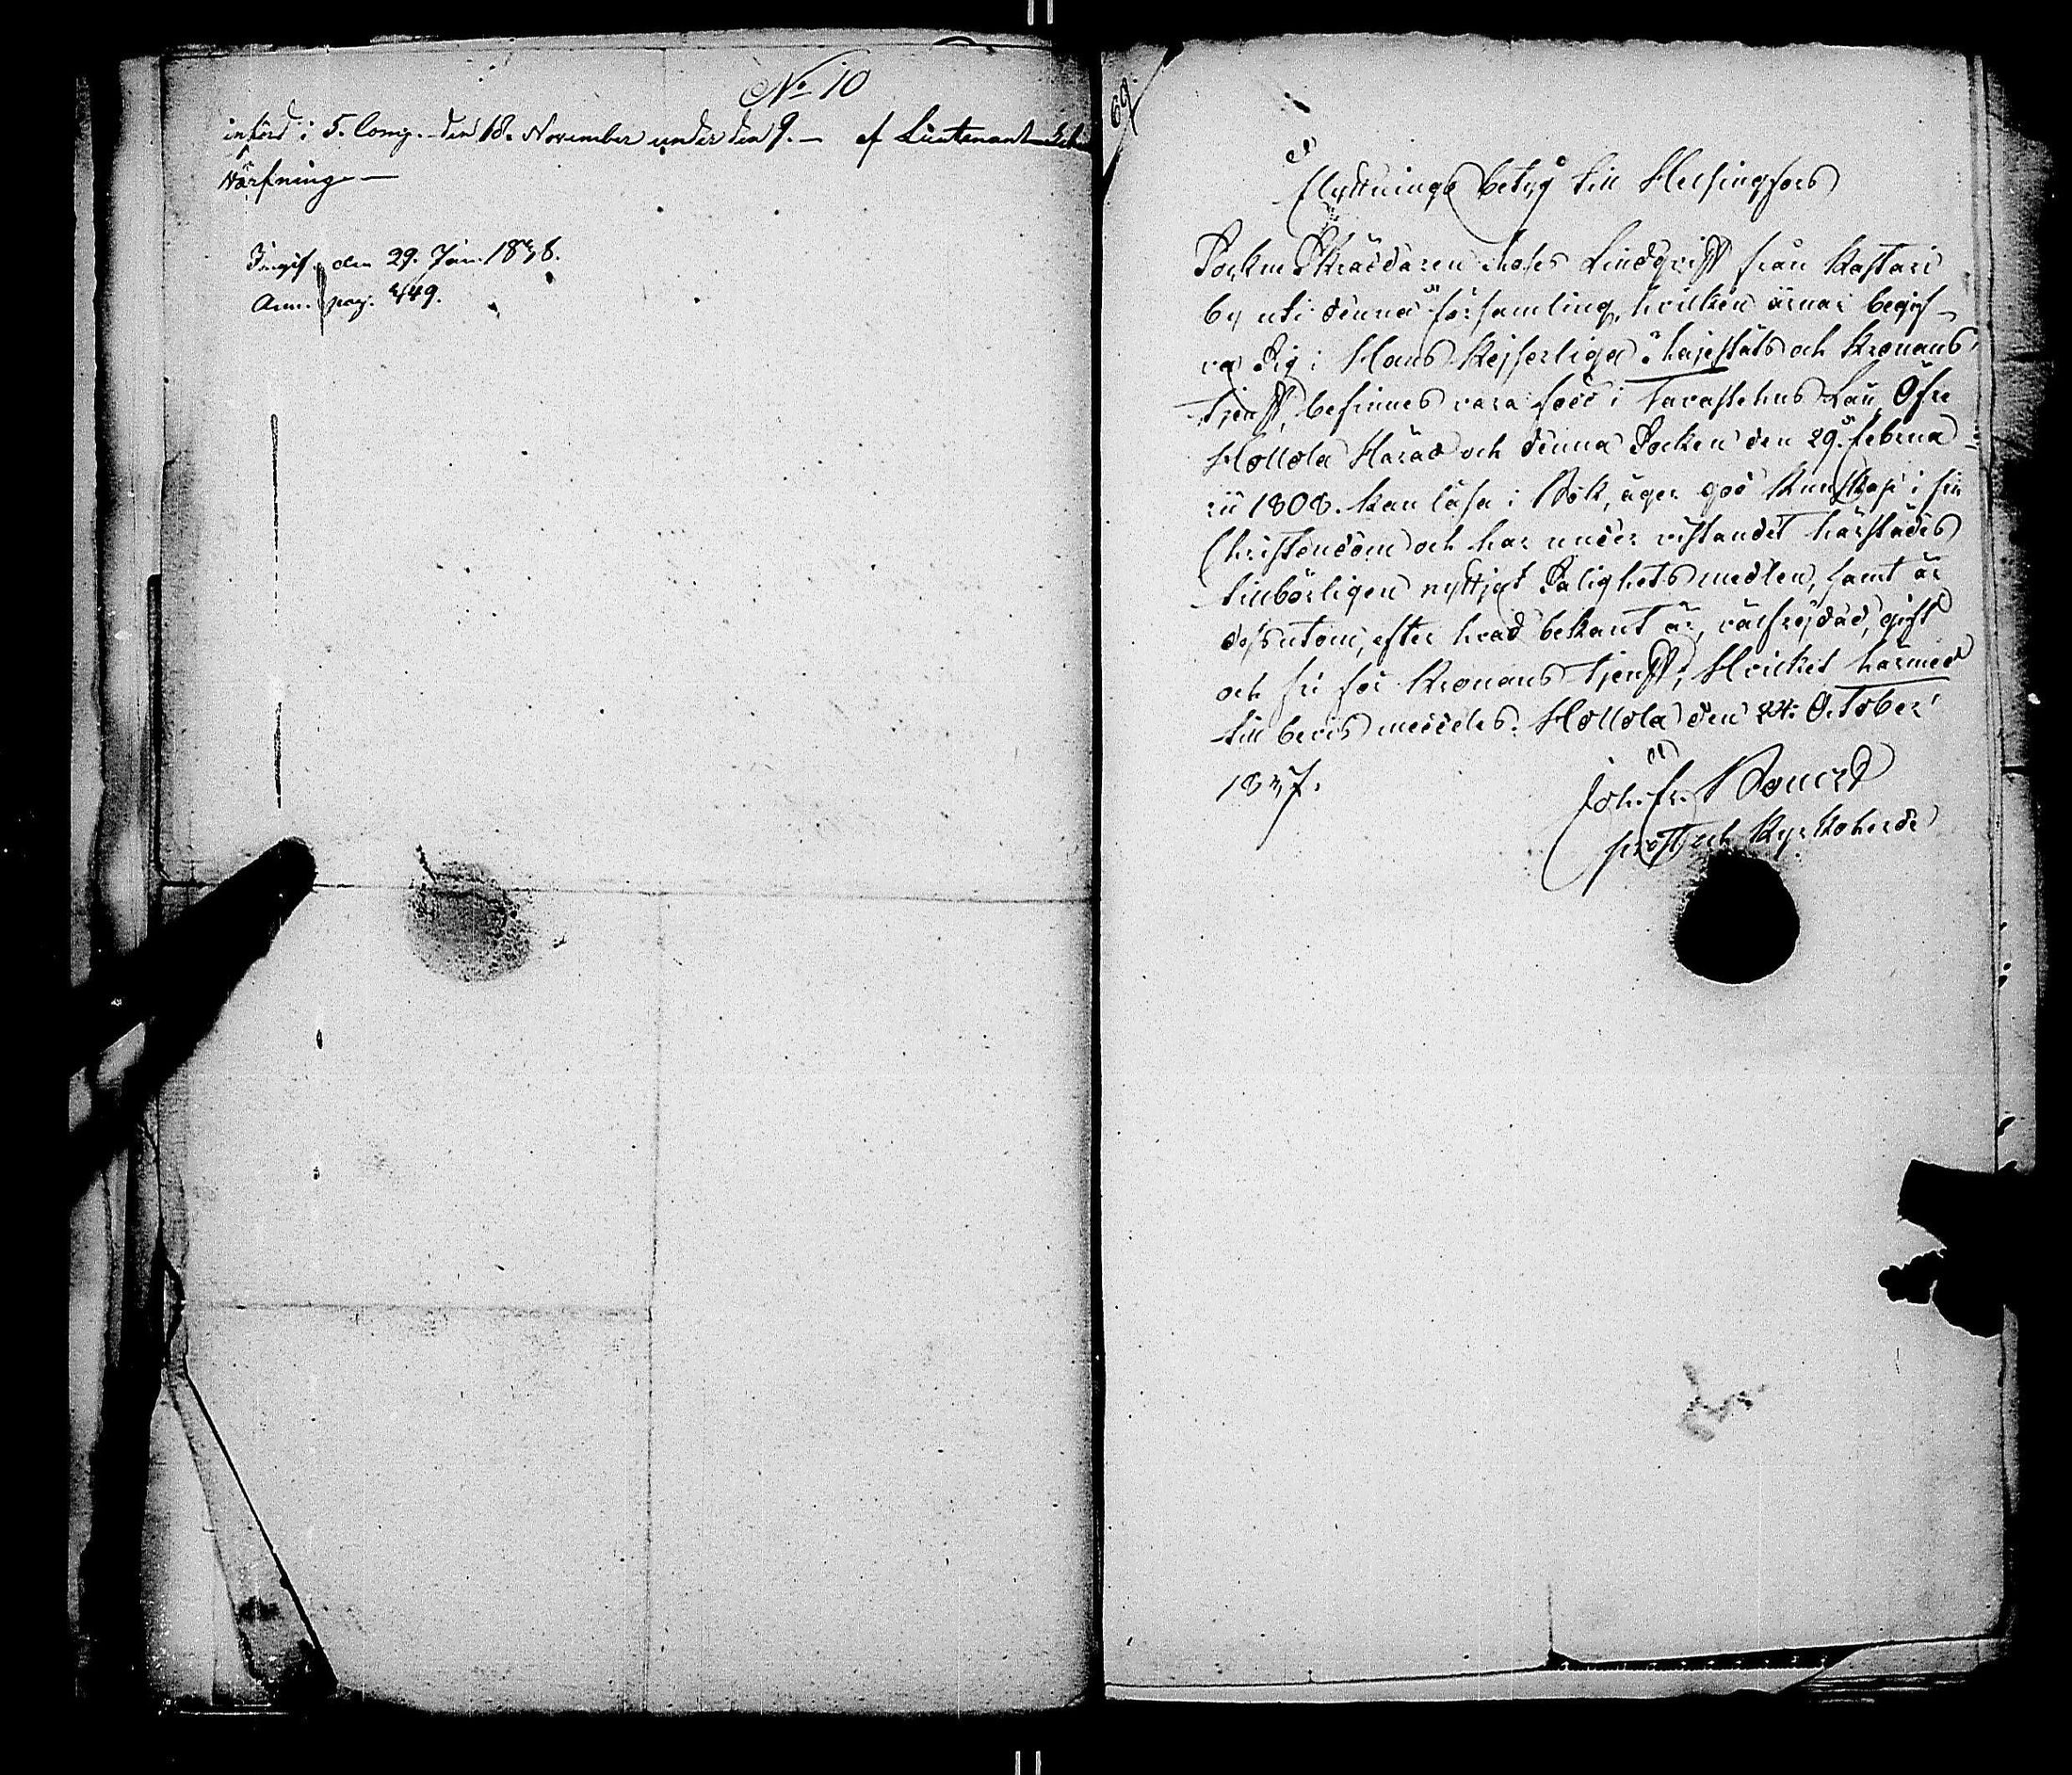 No 10
införd i 5. Comp. den 18. November under den 9. — af Lieutenant
Värfning —
Ingif. den 29. Jan. 1838.
Ann. pag. 449.
69
Flyttnings betyg till Helsingfors
Sockne Skräddaren Moses Lindqvist från Kastari
by uti denna församling, hvilken ärnar begif-
va Sig i Hans Kejserliga Majestäts och Kronans
tjenst, befinnes vara född i Tavastehus Län, Öfre
Hollola Härad och denna Socken den 29. Februa-
rii 1808. kan läsa i Bok, äger god kunskap i sin
Christendom och har under vistandet härstädes
tillbörligen nyttjat Salighets medlen, samt är
dessutom, efter hvad bekant är, välfrejdad, gift
och fri för Kronans tjenst; Hvilket härmed
till bevis meddeles. Hollola den 24. October
1837.
Joh. Fr. Bonsd
prost och Kyrkoherde